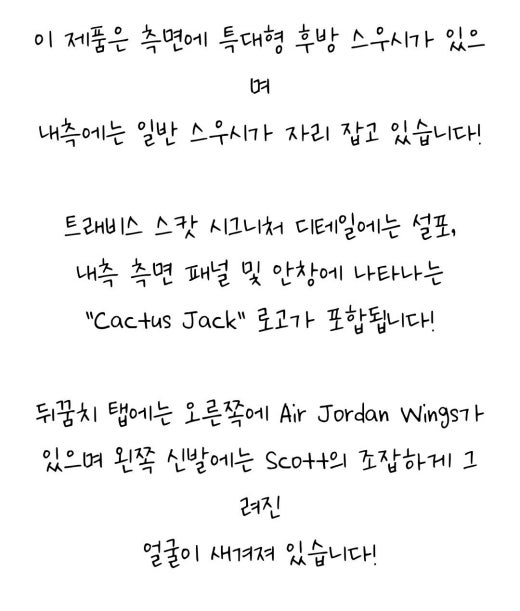 이 제품은 측면에 특대형 후방 스우시가 있으
며
내측에는 일반 스우시가 자리 잡고 있습니다!
트래비스 스캇 시그니처 디테일에는 설포,
내측 측면 패널 및 안창에 나타나는
"Cactus Jack" 로고가 포함됩니다!
뒤꿈치 탭에는 오른쪽에 Air Jordan Wings가
있으며 왼쪽 신발에는 Scott의 조잡하게 그
려진
얼굴이 새겨져 있습니다!